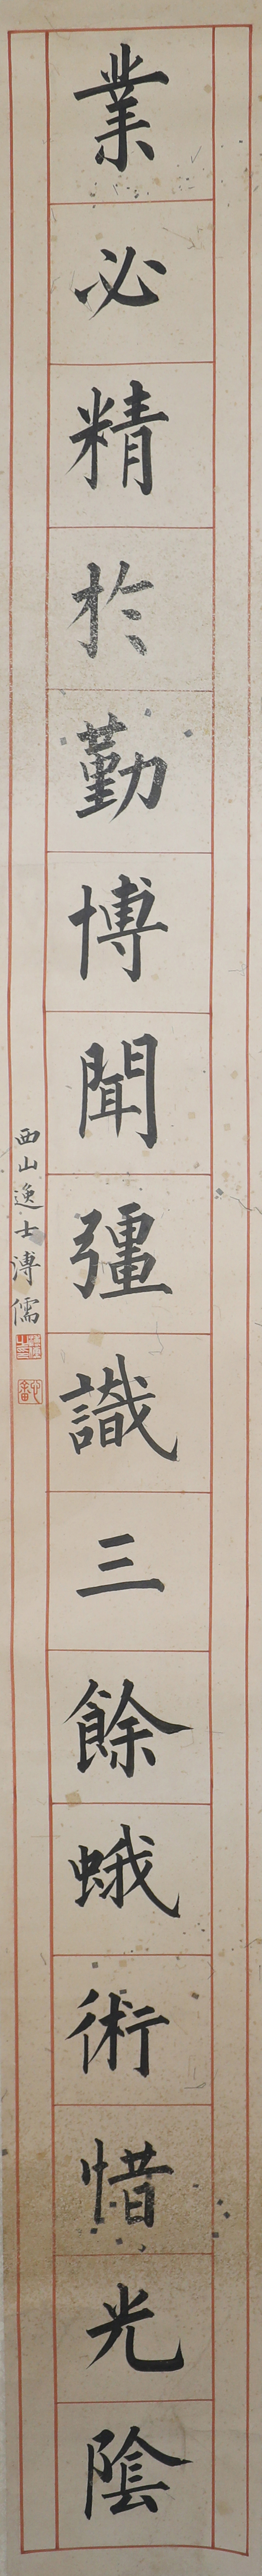 業必精於勤博聞彊識三餘蛾術惜光陰
西山逸士溥儒